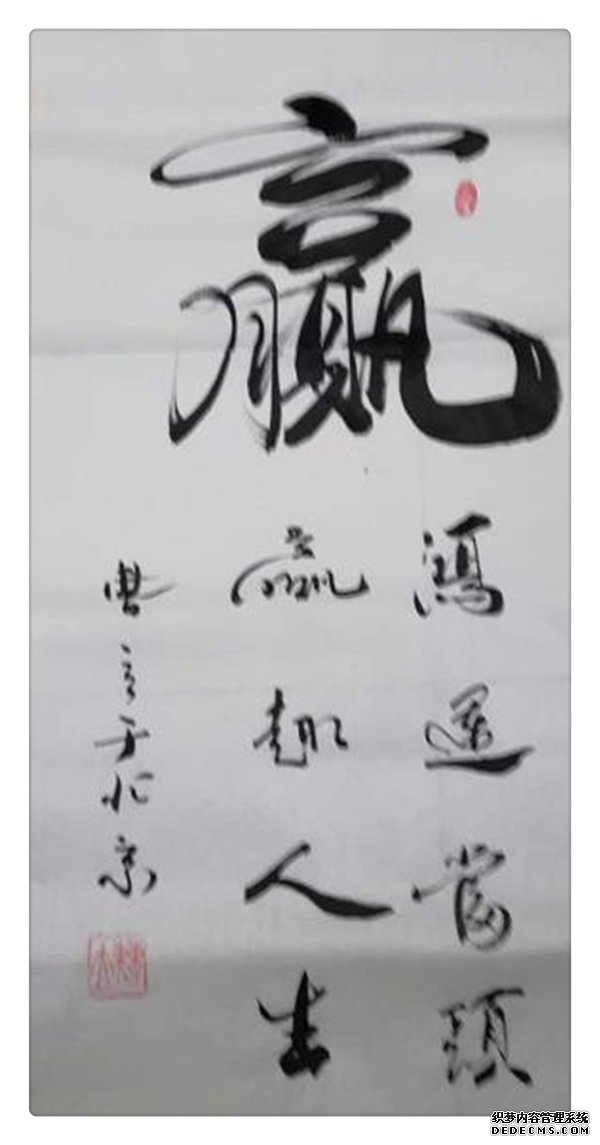 赢
鸿運當頭
赢趣人生
于北京
织梦内容管理系统
DEDECMS.COM